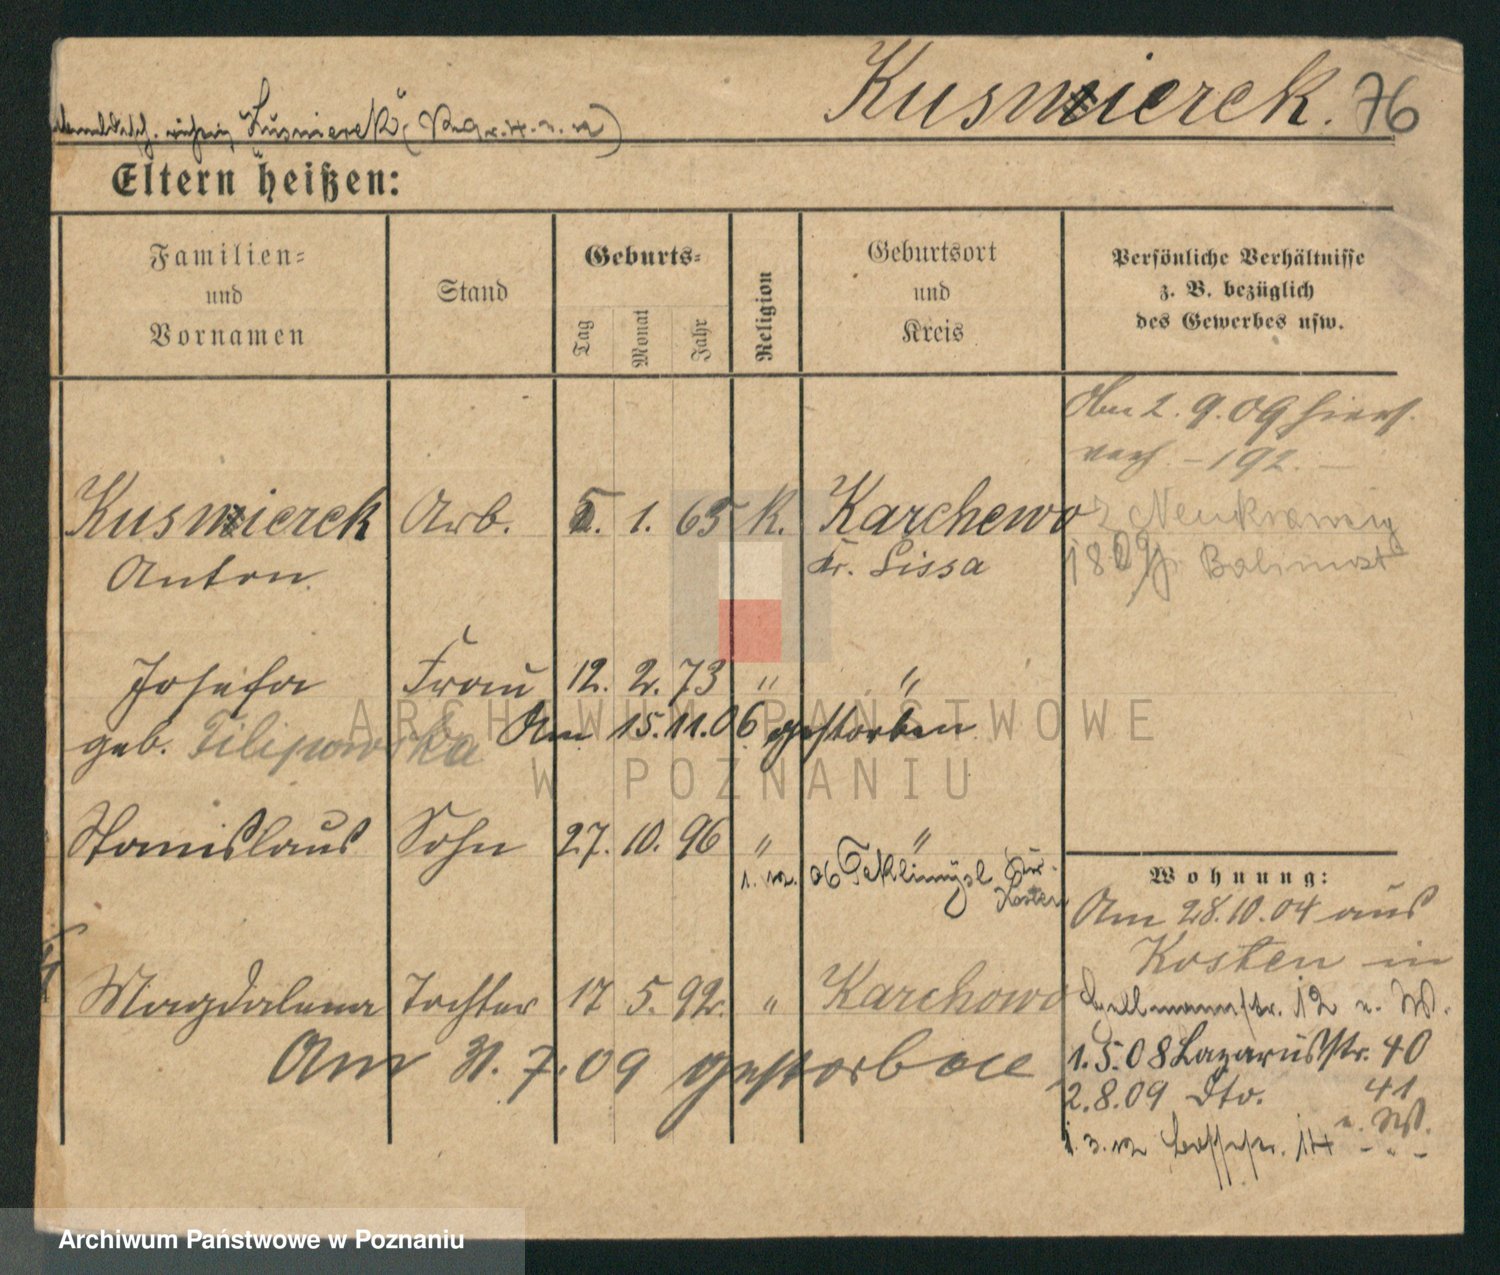 Kusmierek. 76
richtig „Kusmierek"
Eltern heißen:
Familien-
und
Vornamen
Stand
Geburts-
Tag
Monat
Jahr
Religion
Geburtsort
und
Kreis
Persönliche Verhältnisse
z. B. bezüglich
des Gewerbes usw.
Am 2. 9. 09 hiers.
verh. - 192. -
Kusmierek Arb. 5. 1. 65 K. Karchewo
Anton Kr. Lissa
Josefa Frau 12. 2. 73 " "
geb. Filipowska Am 15. 11. 06 gestorben
Stanislaus Sohn 27. 10. 96 " "
1. 12. 06 Kr. Kosten
Wohnung:
Am 28. 10. 04 aus
Kosten in
Magdalena Tochter 17 5. 92. " Karchowo
12 n. W.
Am 31. 7. 09 gestorben
1. 5. 08 Lazarusstr. 40
2. 8. 09 dto. 41
n. W.
1. 3. 12 14 - " -
ARCHIWUM PAŃSTWOWE
W POZNANIU
Archiwum Państwowe w Poznaniu